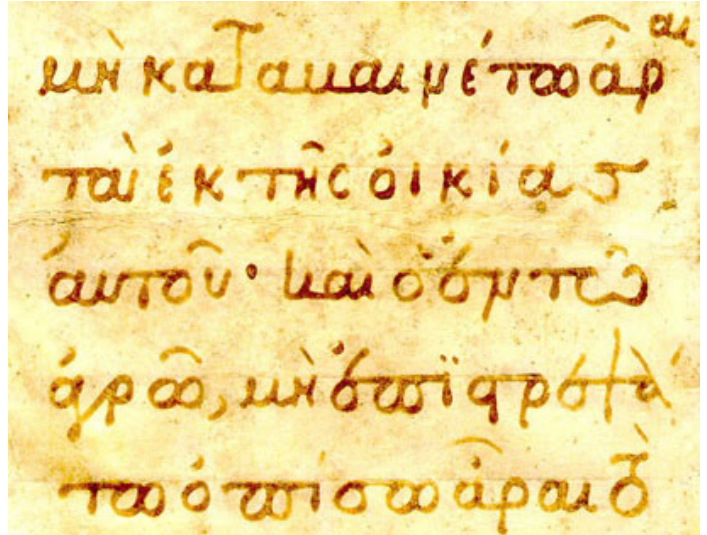 μὴ καταβαινέτω ἆραι
τὰ ἐκ τῆς ὀικίας
ἀυτοῦ· καὶ ὁ ἐν τῶ
ἀγρῶ, μὴ ἐπϊστρεψά
τω ὀπίσω ἆραι τὸ